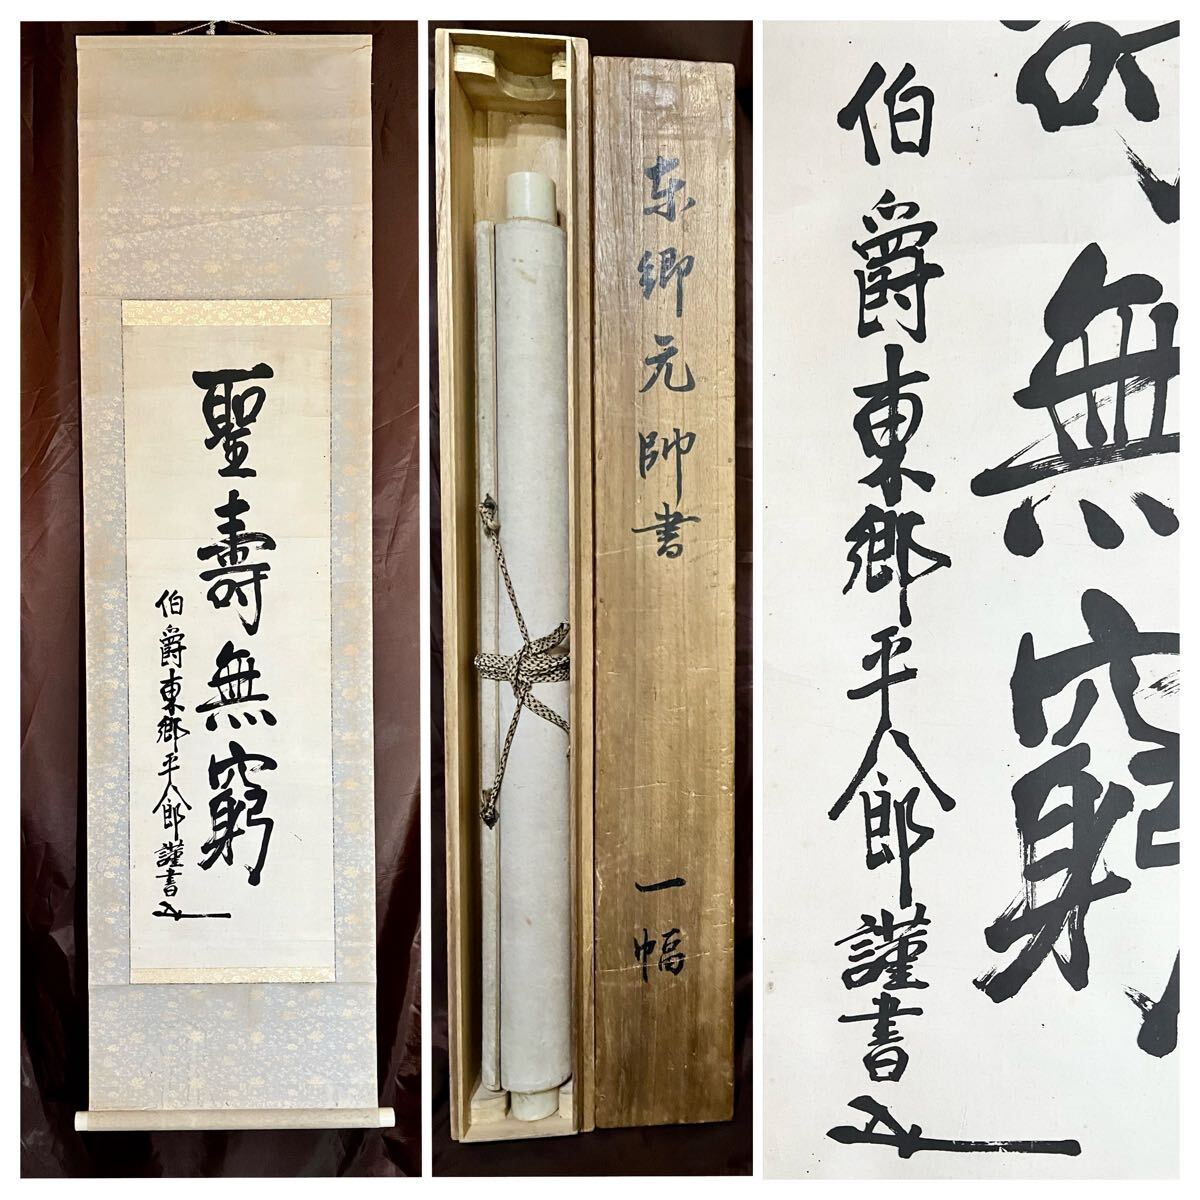 聖壽無窮
伯爵東郷平八郎謹書
東郷元帥書 一幅
伯爵東郷平八郎謹書
無窮